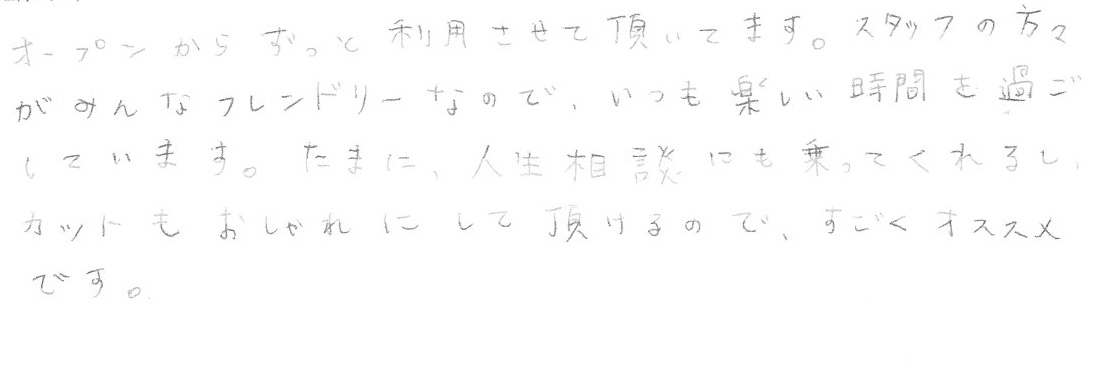 オープンからずっと利用させて頂いてます。スタッフの方々
がみんなフレンドリーなので、いつも楽しい時間を過ご
しています。たまに、人生相談にも乗ってくれるし、
カットもおしゃれにして頂けるので、すごくオススメ
です。